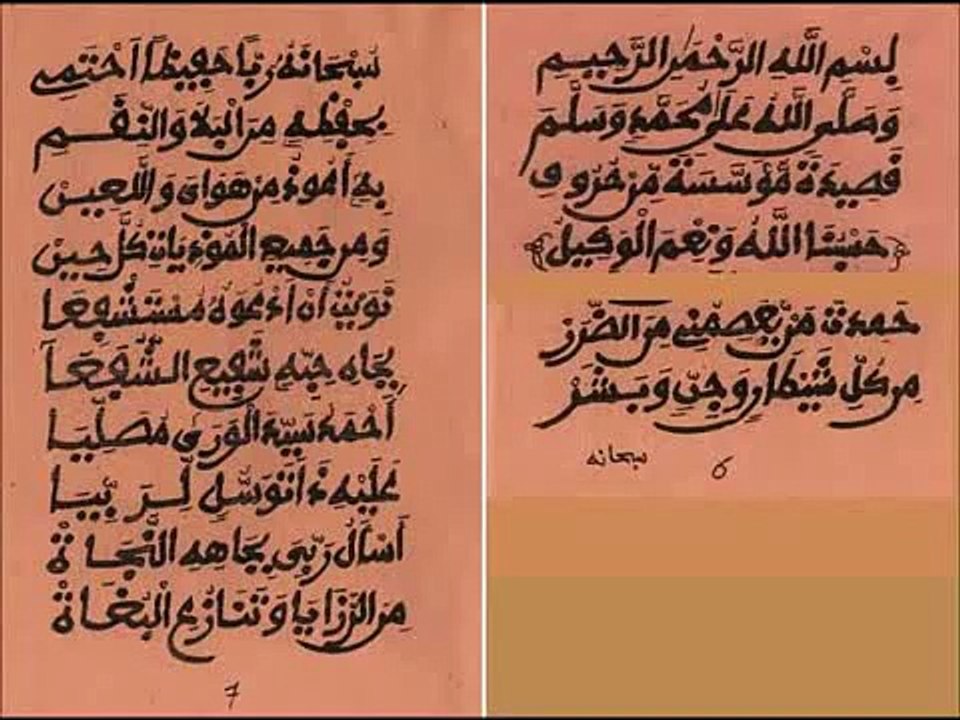 بِسْمِ اللَّهِ الرَّحْمَنِ الرَّحِيمِ
وَصَلَّى اللَّهُ عَلَى مُحَمَّدٍ وَسَلَّمَ
قَصِيدَةٌ مُؤَسَّسَةٌ مِّنْ حُرُوفِ
حَسْبُنَا اللَّهُ وَنِعْمَ الْوَكِيلُ
حَمِدتُّ مَنْ يَعْصِمُنِي مِنَ الضَّرَرْ
مِن كُلِّ شَيْطَانٍ وَجِنٍّ وَبَشَرْ
سبحانه 6
سُبْحَانَهُ رَبًّا حَفِيظًا أَحْتَمِي
بِحِفْظِهِ مِنَ الْبَلَا وَالنِّقَمِ
بِهِ أَعُوذُ مِنْ هَوَايَ وَاللَّعِينْ
وَمِن جَمِيعِ الْمُوذِيَاتِ كُلَّ حِينْ
نَوَيْتُ أَنْ أَدْعُوَهُ مُسْتَشْفِعَا
بِجَاهِ حِبِّهِ شَفِيعِ الشُّفَعَا
أَحْمَدَ سَيِّدِ الْوَرَى مُصَلِّيَا
عَلَيْهِ ذَا تَوَسُّلٍ لِرَبِّيَا
أَسْأَلُ رَبِّي بِجَاهِهِ النَّجَاةْ
مِنَ الرَّزَايَا وَتَنَازُعِ الْبُغَاةْ
7